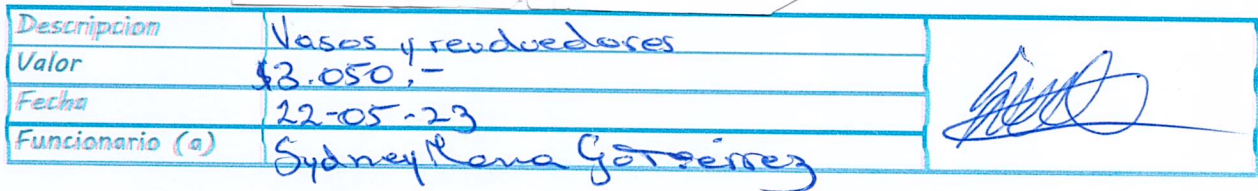 Descripcion Vasos y revolvedores
Valor $3.050,-
Fecha 22-05-23
Funcionario (a) Sydney Gutiérrez